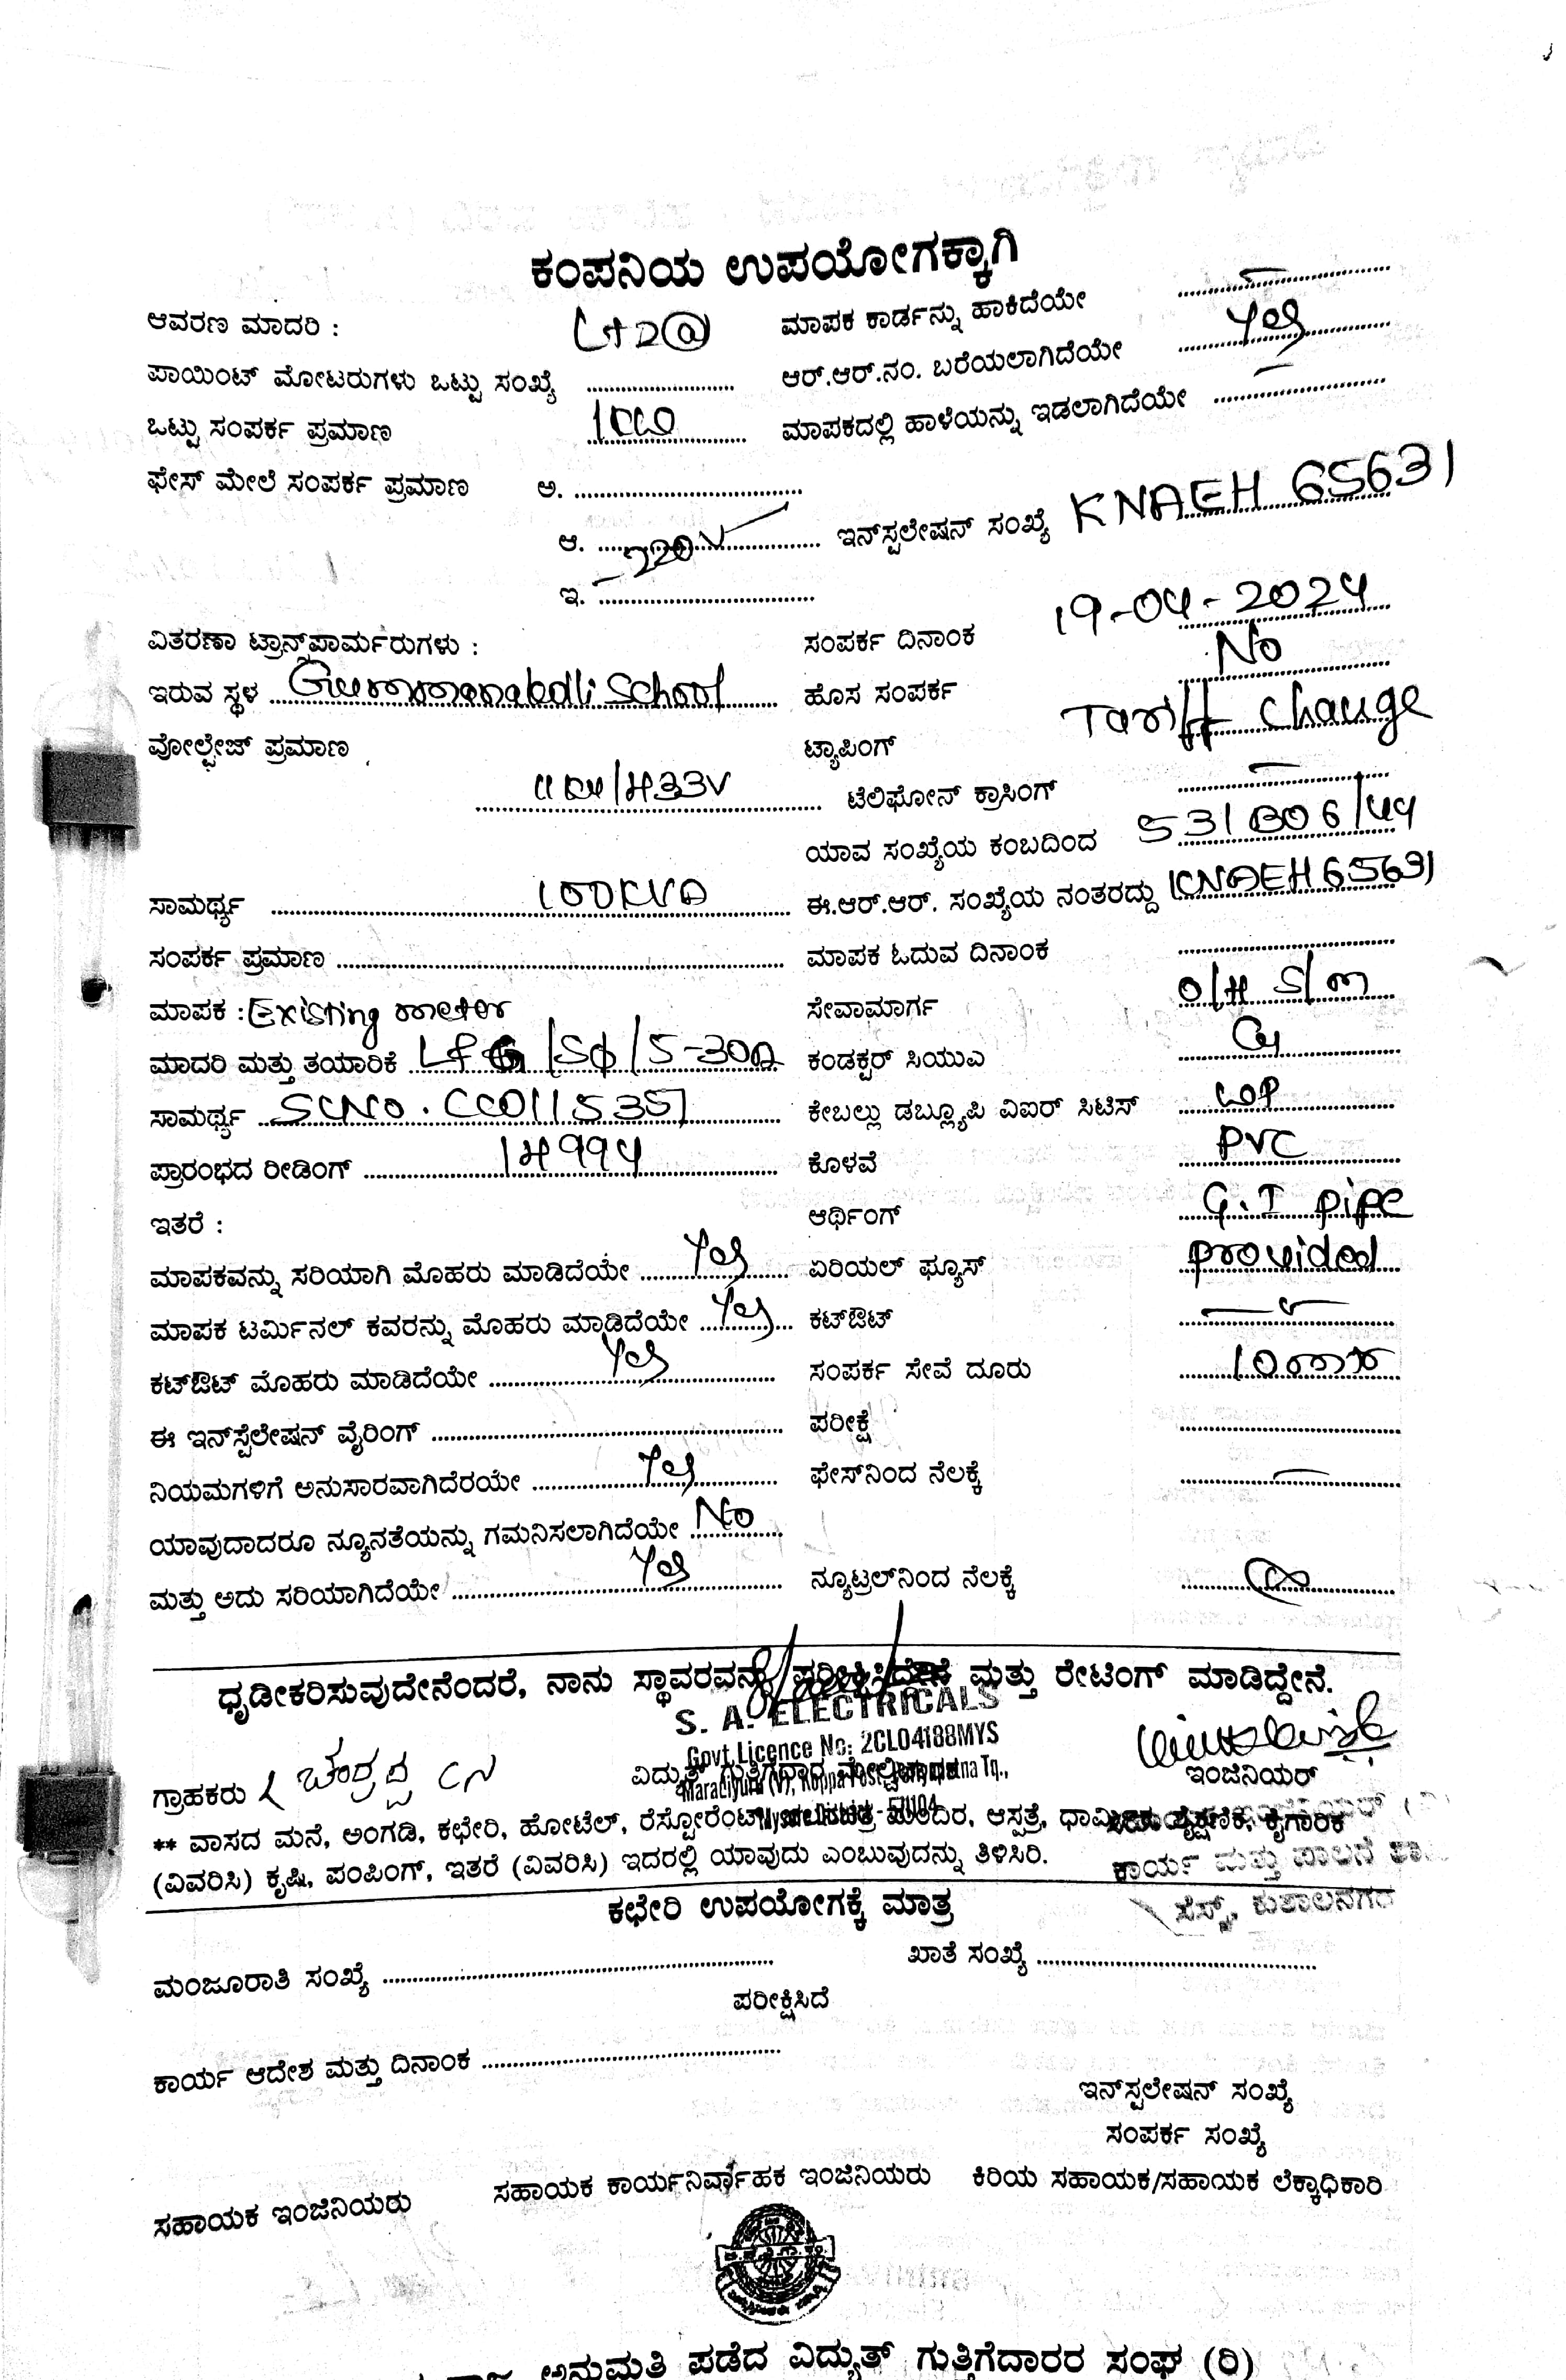 ಕಂಪನಿಯ ಉಪಯೋಗಕ್ಕಾಗಿ
ಆವರಣ ಮಾದರಿ : LT2@ ಮಾಪಕ ಕಾರ್ಡನ್ನು ಹಾಕಿದೆಯೇ
ಪಾಯಿಂಟ್ ಮೋಟರುಗಳು ಒಟ್ಟು ಸಂಖ್ಯೆ ಆರ್.ಆರ್.ನಂ. ಬರೆಯಲಾಗಿದೆಯೇ Yes
ಒಟ್ಟು ಸಂಪರ್ಕ ಪ್ರಮಾಣ ಮಾಪಕದಲ್ಲಿ ಹಾಳೆಯನ್ನು ಇಡಲಾಗಿದೆಯೇ
ಫೇಸ್ ಮೇಲೆ ಸಂಪರ್ಕ ಪ್ರಮಾಣ ಅ.
ಆ. 220V ಇನ್‌ಸ್ಪಲೇಷನ್ ಸಂಖ್ಯೆ KNAEH 65631
ಇ.
ವಿತರಣಾ ಟ್ರಾನ್ಸ್‌ಪಾರ್ಮರುಗಳು : ಸಂಪರ್ಕ ದಿನಾಂಕ 19-04-2024
ಇರುವ ಸ್ಥಳ Gummanakolli School ಹೊಸ ಸಂಪರ್ಕ No
ವೋಲ್ಟೇಜ್ ಪ್ರಮಾಣ ಟ್ಯಾಪಿಂಗ್ Tariff Change
11KV/433V ಟೆಲಿಫೋನ್ ಕ್ರಾಸಿಂಗ್
ಯಾವ ಸಂಖ್ಯೆಯ ಕಂಬದಿಂದ
ಸಾಮರ್ಥ್ಯ 100KVA ಈ.ಆರ್.ಆರ್. ಸಂಖ್ಯೆಯ ನಂತರದ್ದು KNAEH65631
ಸಂಪರ್ಕ ಪ್ರಮಾಣ ಮಾಪಕ ಓದುವ ದಿನಾಂಕ
ಮಾಪಕ : Existing meter ಸೇವಾಮಾರ್ಗ O/H S/m
ಮಾದರಿ ಮತ್ತು ತಯಾರಿಕೆ L&G /Sφ/5-30A ಕಂಡಕ್ಟರ್ ಸಿಯುಎ
ಸಾಮರ್ಥ್ಯ SLNO. CC0115357 ಕೇಬಲ್ಲು ಡಬ್ಲ್ಯೂಪಿ ವಿಐರ್ ಸಿಟಿಸ್ WP
ಪ್ರಾರಂಭದ ರೀಡಿಂಗ್ 14994 ಕೊಳವೆ PVC
ಇತರೆ : ಆರ್ಥಿಂಗ್ G.I pipe
ಮಾಪಕವನ್ನು ಸರಿಯಾಗಿ ಮೊಹರು ಮಾಡಿದೆಯೇ Yes ಏರಿಯಲ್ ಫ್ಯೂಸ್ provided
ಮಾಪಕ ಟರ್ಮಿನಲ್ ಕವರನ್ನು ಮೊಹರು ಮಾಡಿದೆಯೇ Yes ಕಟ್‌ಔಟ್
ಕಟ್‌ಔಟ್ ಮೊಹರು ಮಾಡಿದೆಯೇ Yes ಸಂಪರ್ಕ ಸೇವೆ ದೂರು
ಈ ಇನ್‌ಸ್ಪೆಲೇಷನ್ ವೈರಿಂಗ್ ಪರೀಕ್ಷೆ
ನಿಯಮಗಳಿಗೆ ಅನುಸಾರವಾಗಿದೆರಯೇ Yes ಫೇಸ್‌ನಿಂದ ನೆಲಕ್ಕೆ
ಯಾವುದಾದರೂ ನ್ಯೂನತೆಯನ್ನು ಗಮನಿಸಲಾಗಿದೆಯೇ No
ಮತ್ತು ಅದು ಸರಿಯಾಗಿದೆಯೇ Yes ನ್ಯೂಟ್ರಲ್‌ನಿಂದ ನೆಲಕ್ಕೆ
ಧೃಡೀಕರಿಸುವುದೇನೆಂದರೆ, ನಾನು ಸ್ಥಾವರವನ್ನು ಪರೀಕ್ಷಿಸಿದ್ದೇನೆ ಮತ್ತು ರೇಟಿಂಗ್ ಮಾಡಿದ್ದೇನೆ.
S. A. ELECTRICALS
Govt. Licence No: 2CL04188MYS
ಗ್ರಾಹಕರು ವಿದ್ಯುತ್ ಗುತ್ತಿಗೆದಾರ ಇಂಜಿನಿಯರ್
Mysore District - 571104
** ವಾಸದ ಮನೆ, ಅಂಗಡಿ, ಕಛೇರಿ, ಹೋಟೆಲ್, ರೆಸ್ಟೋರೆಂಟ್ ಮಂದಿರ, ಆಸ್ಪತ್ರೆ, ಧಾರ್ಮಿಕ, ಶೈಕ್ಷಣಿಕ, ಕೈಗಾರಿಕ
(ವಿವರಿಸಿ) ಕೃಷಿ, ಪಂಪಿಂಗ್, ಇತರೆ (ವಿವರಿಸಿ) ಇದರಲ್ಲಿ ಯಾವುದು ಎಂಬುವುದನ್ನು ತಿಳಿಸಿರಿ.
ಕಾರ್ಯ ಮತ್ತು ಪಾಲನೆ
ಸೆಸ್ಕ್, ಕುಶಾಲನಗರ
ಕಛೇರಿ ಉಪಯೋಗಕ್ಕೆ ಮಾತ್ರ
ಮಂಜೂರಾತಿ ಸಂಖ್ಯೆ ಖಾತೆ ಸಂಖ್ಯೆ
ಪರೀಕ್ಷಿಸಿದೆ
ಕಾರ್ಯ ಆದೇಶ ಮತ್ತು ದಿನಾಂಕ
ಇನ್‌ಸ್ಪಲೇಷನ್ ಸಂಖ್ಯೆ
ಸಂಪರ್ಕ ಸಂಖ್ಯೆ
ಸಹಾಯಕ ಇಂಜಿನಿಯರು ಸಹಾಯಕ ಕಾರ್ಯನಿರ್ವಾಹಕ ಇಂಜಿನಿಯರು ಕಿರಿಯ ಸಹಾಯಕ/ಸಹಾಯಕ ಲೆಕ್ಕಾಧಿಕಾರಿ
ಅನುಮತಿ ಪಡೆದ ವಿದ್ಯುತ್ ಗುತ್ತಿಗೆದಾರರ ಸಂಘ (ರಿ)